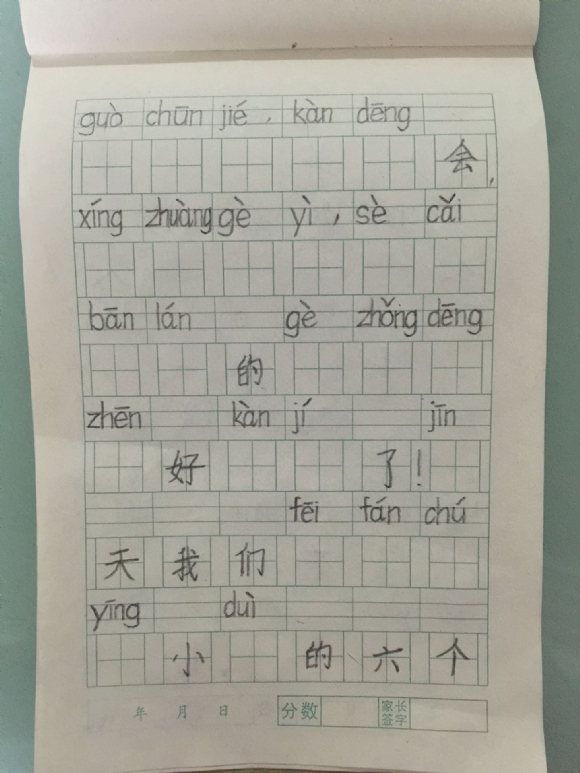 guò chūn jié, kàn dēng
会,
xíng zhuàng gè yì, sè cǎi
bān lán gè zhǒng dēng
的
zhēn kàn jí jīn
好 了!
fēi fán chú
天 我 们
yīng duì
小 的 六 个
年 月 日 分数 家长签字